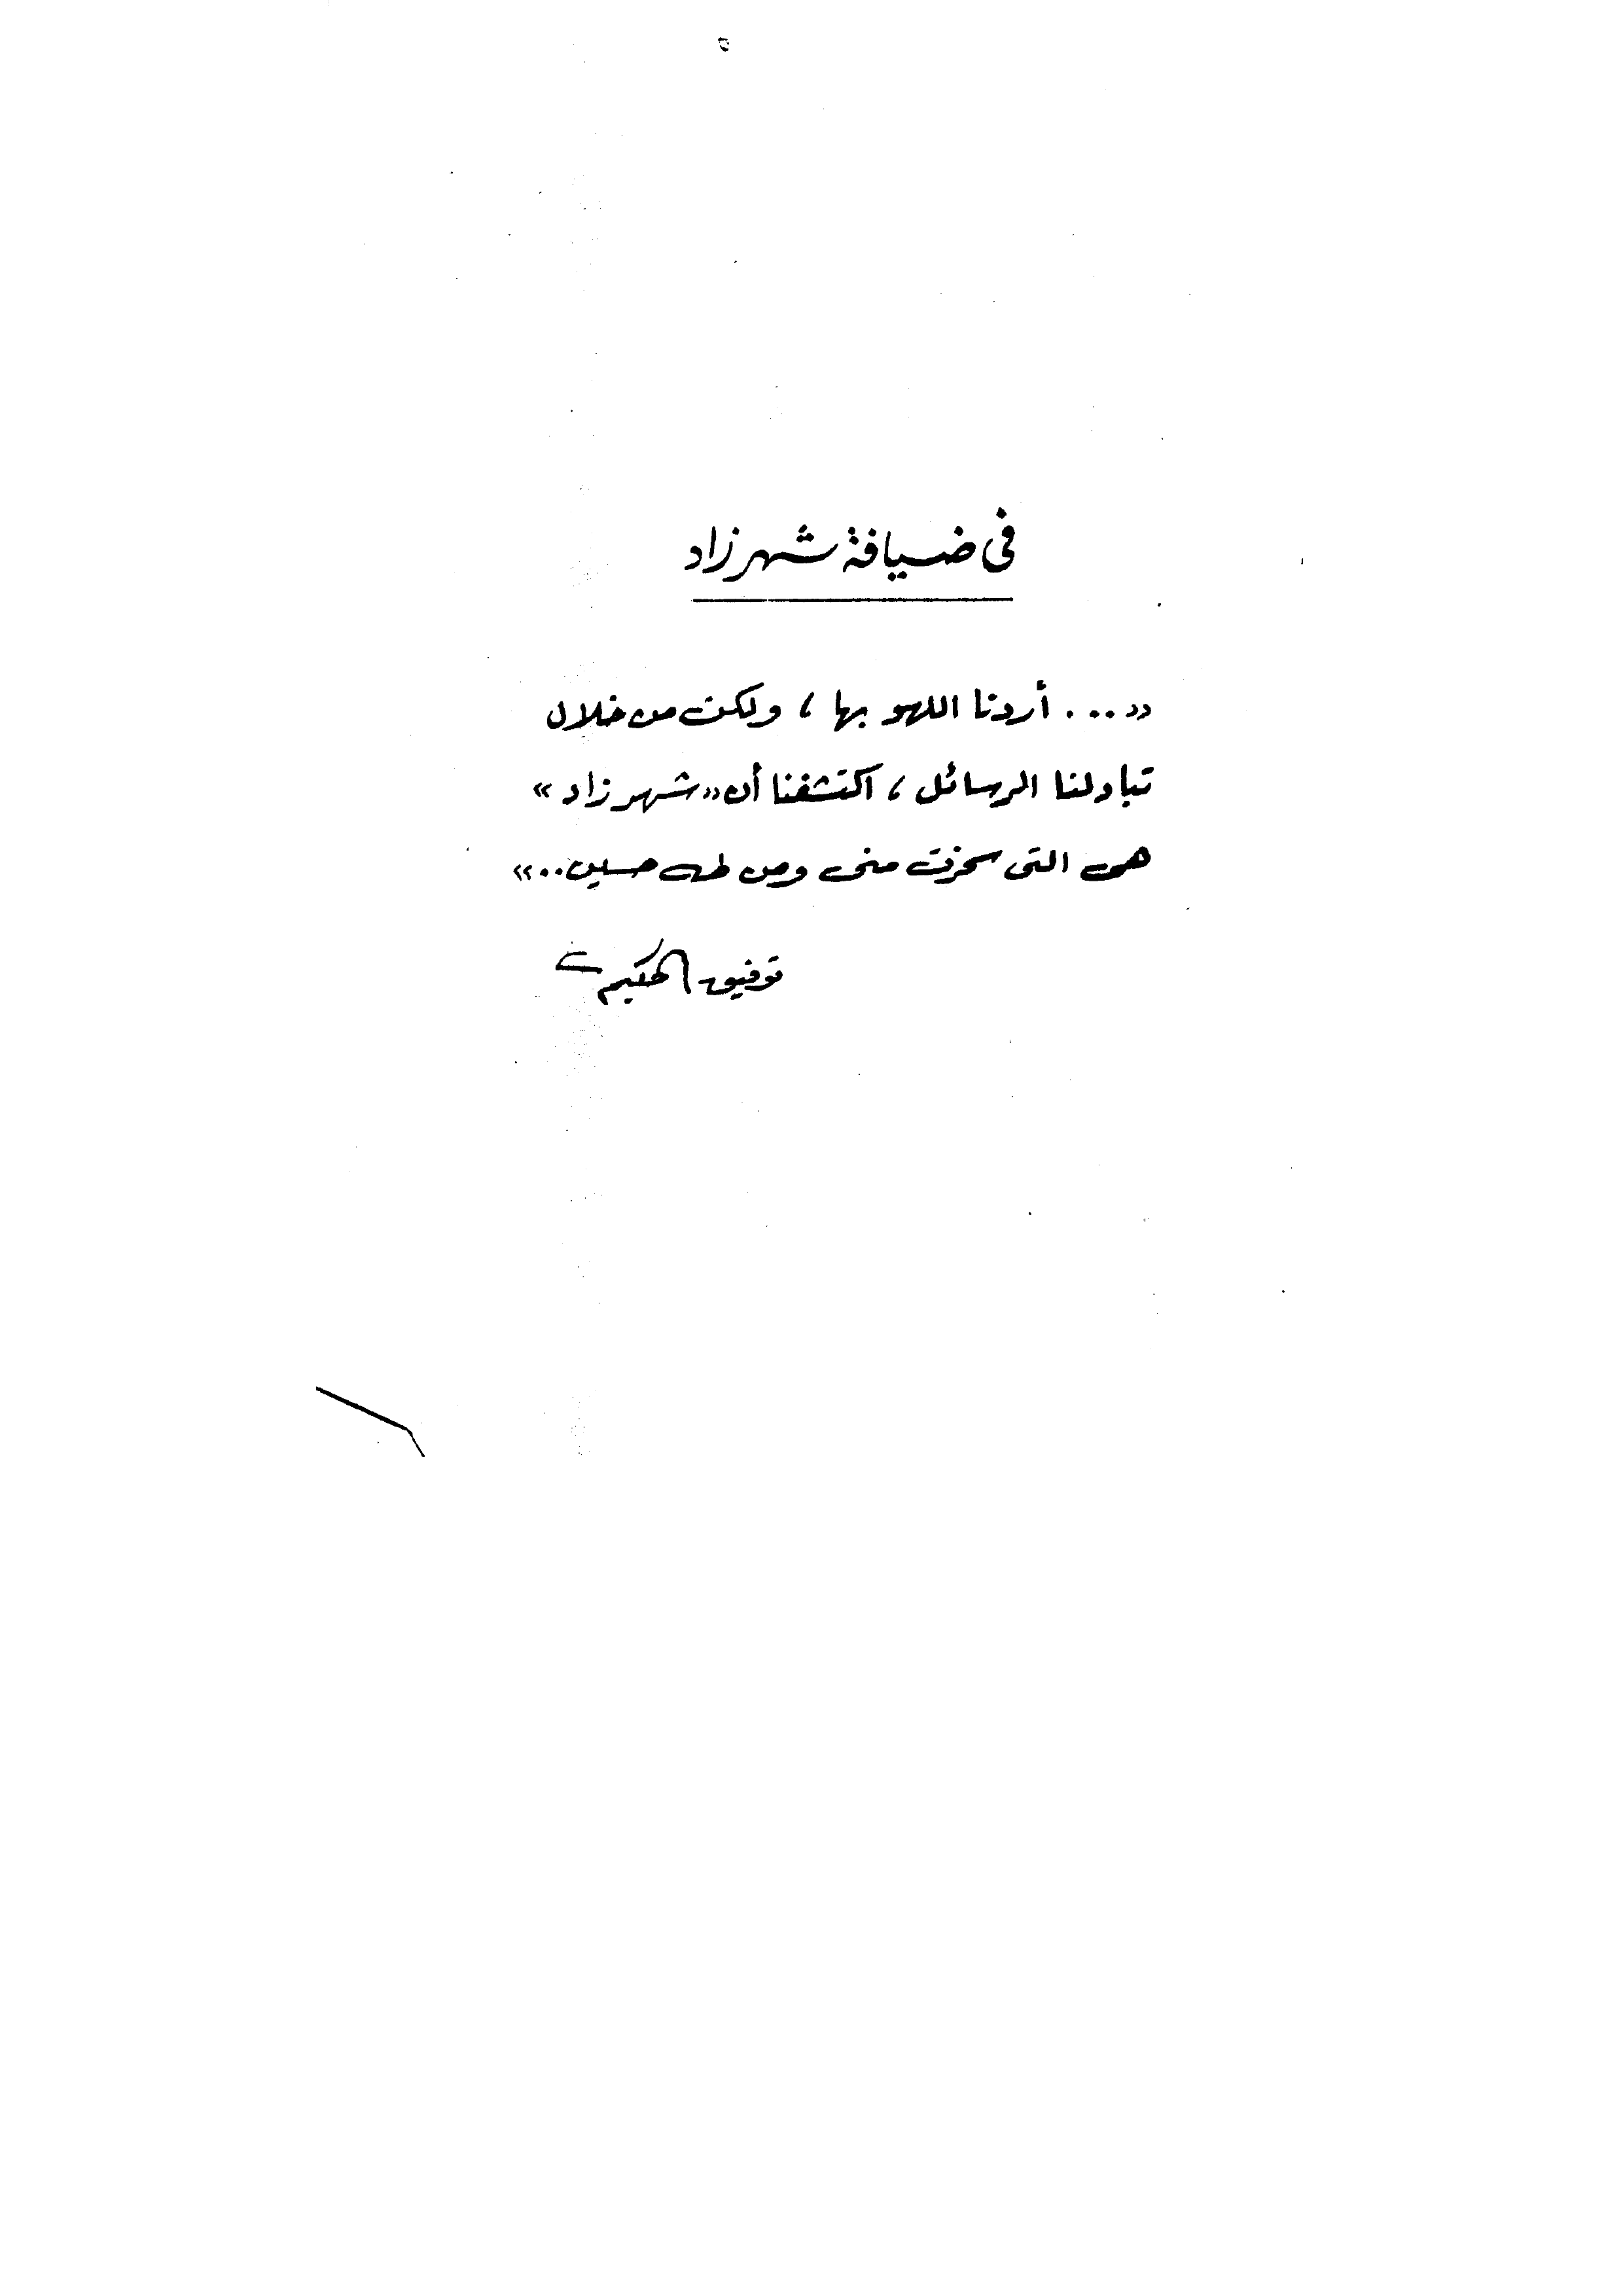 ٥
فى ضيافة شهر زاد
«.... أردنا اللهو بها ، ولكن من خلال
تبادلنا الرسائل ، اكتشفنا أن «شهر زاد»
هى التى سخرت منى ومن طه حسين..»
توفيق الحكيم